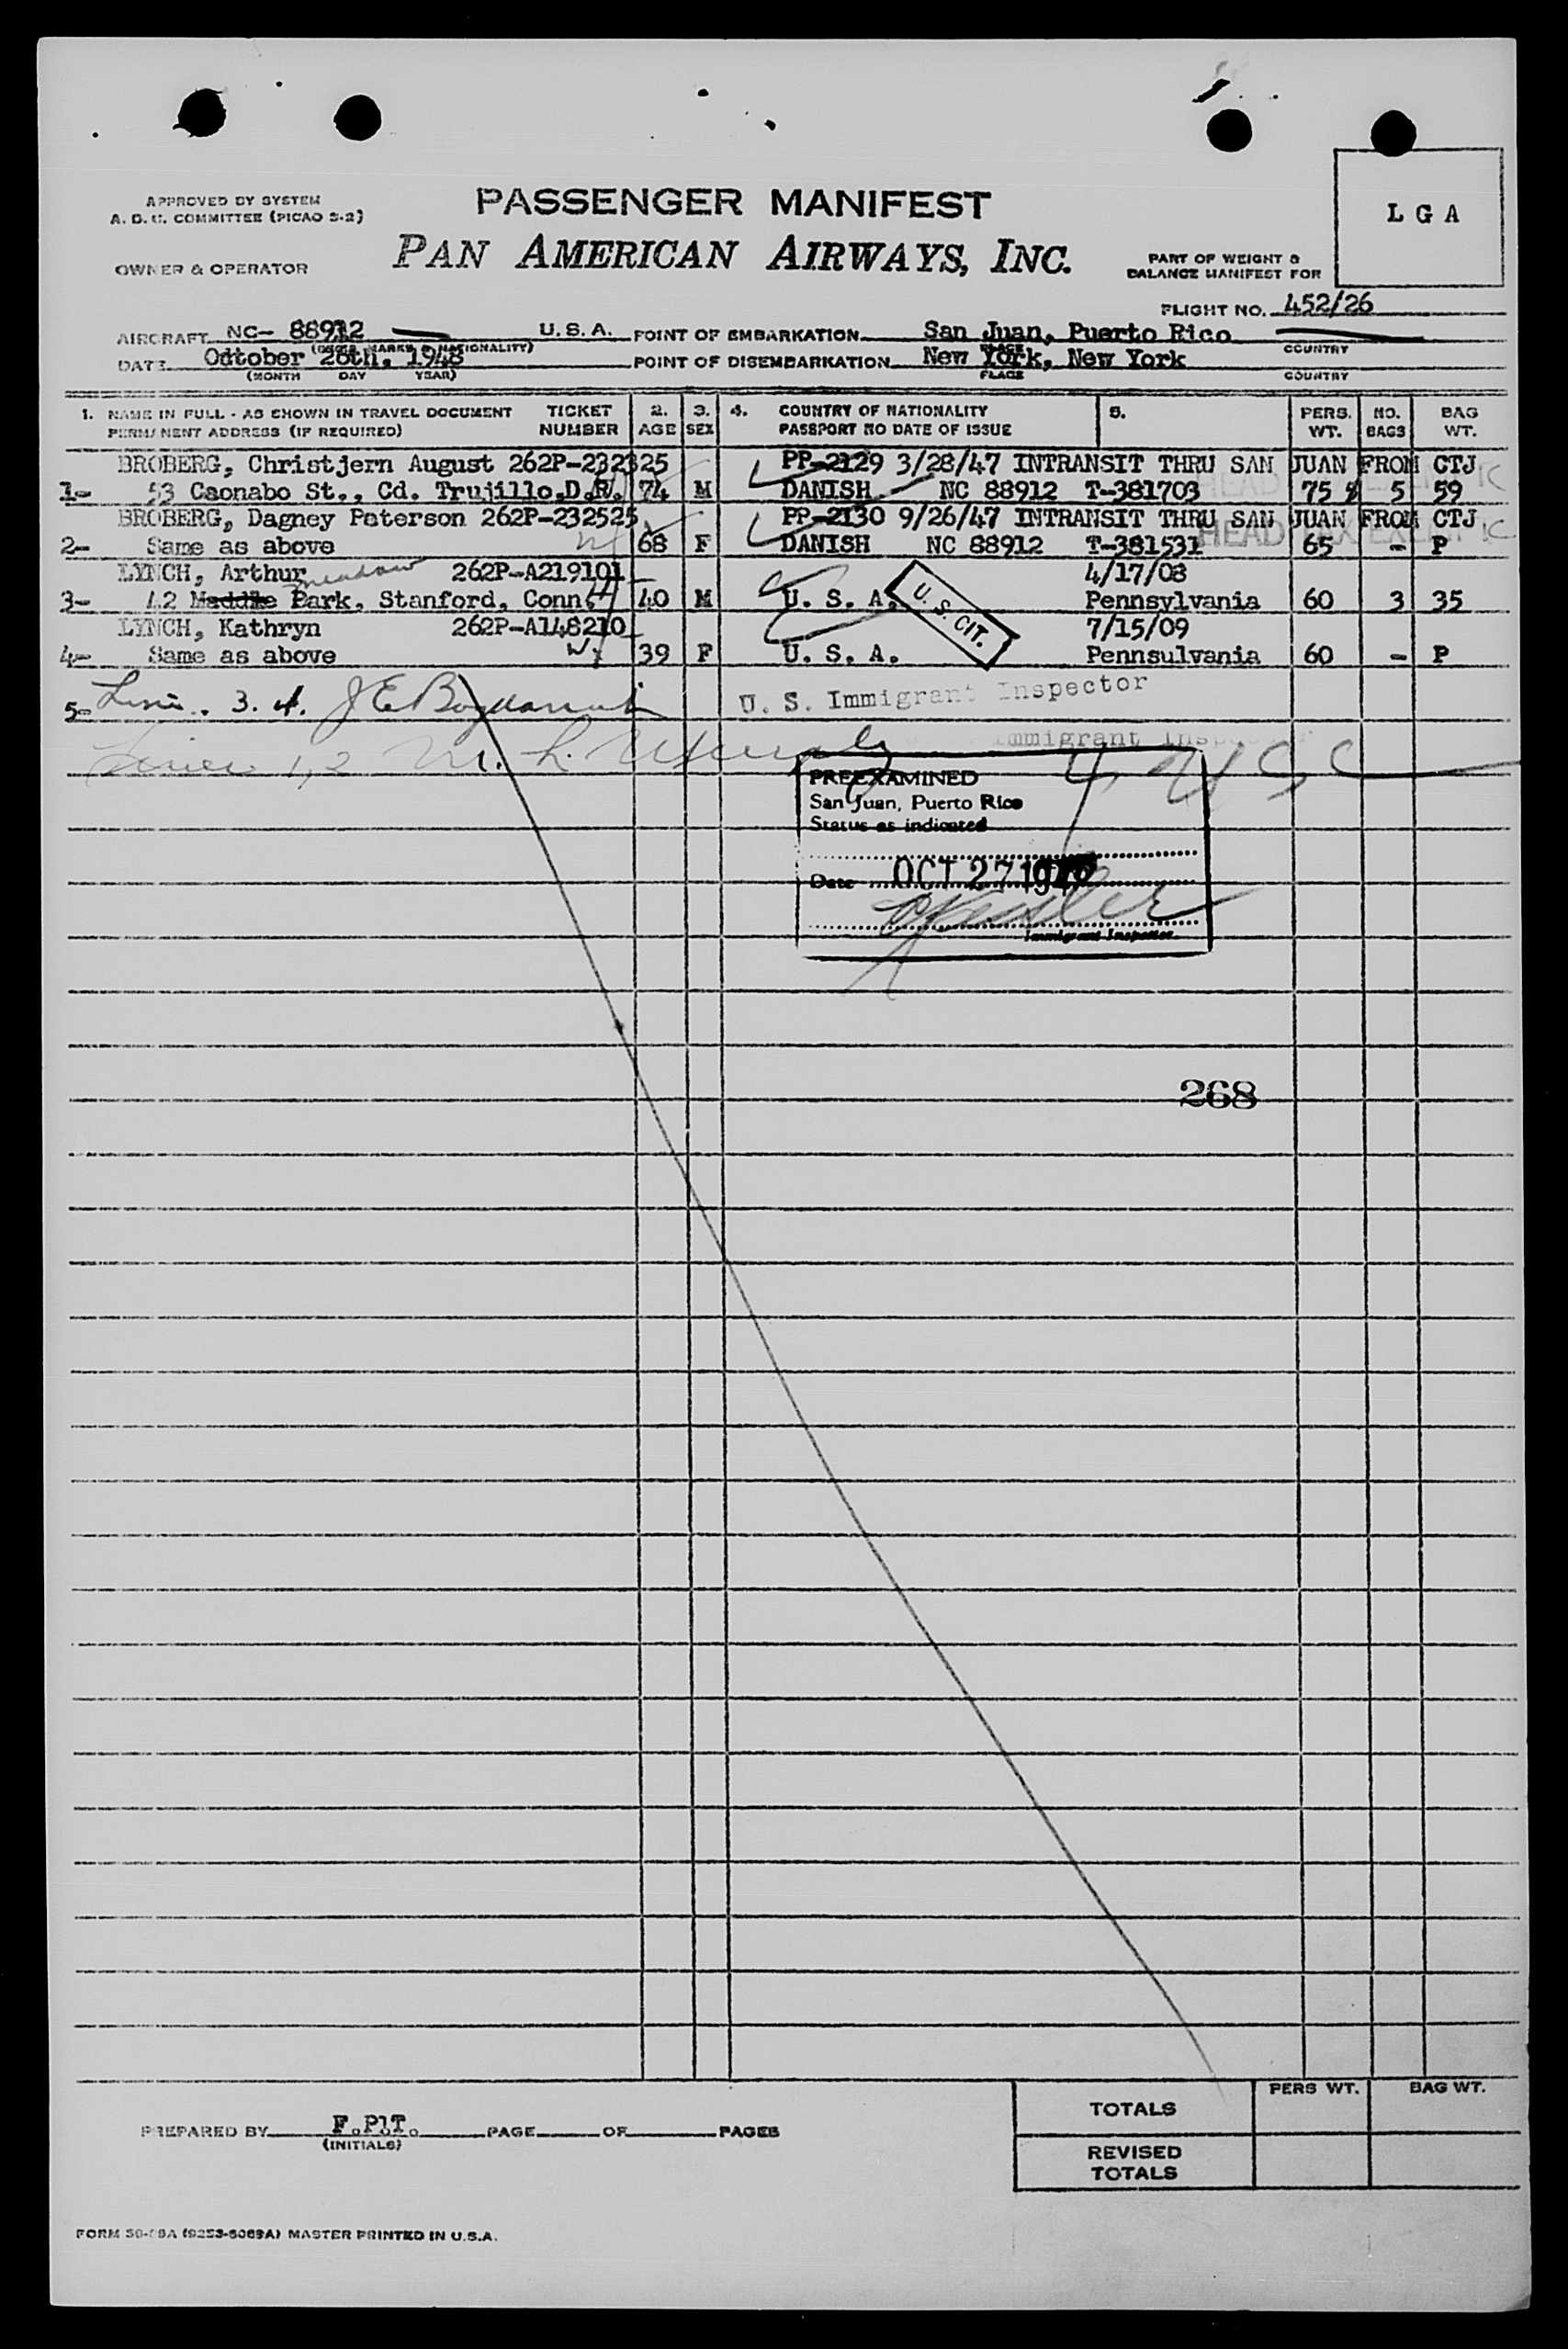 APPROVED BY SYSTEM
A. D. C. COMMITTEE (PICAO S-2)
PASSENGER MANIFEST
L G A
OWNER & OPERATOR
PAN AMERICAN AIRWAYS, INC.
PART OF WEIGHT &
BALANCE MANIFEST FOR
FLIGHT NO. 452/26
AIRCRAFT NC- 88912 U.S.A. POINT OF EMBARKATION San Juan, Puerto Rico
(MARKS & NATIONALITY) PLACE COUNTRY
DATE Odtober 26th, 1948 POINT OF DISEMBARKATION New York, New York
(MONTH DAY YEAR) PLACE COUNTRY
1. NAME IN FULL - AS SHOWN IN TRAVEL DOCUMENT TICKET 2. 3. 4. COUNTRY OF NATIONALITY 5. PERS. NO. BAG
PERMANENT ADDRESS (IF REQUIRED) NUMBER AGE SEX PASSPORT NO DATE OF ISSUE WT. BAGS WT.
BROBERG, Christjern August 262P-232325 PP-2129 3/28/47 INTRANSIT THRU SAN JUAN FROM CTJ
1- 53 Csonabo St., Cd. Trujillo,D.R. 74 M DANISH NC 88912 T-381703 75 5 59
BROBERG, Dagney Peterson 262P-232525 PP-2130 9/26/47 INTRANSIT THRU SAN JUAN FROM CTJ
2- Same as above 68 F DANISH NC 88912 T-381531 HEAD TAX EXEMPT 65 - P
LYNCH, Arthur meadow 262P-A219101 4/17/08
3- 42 Maddke Park, Stanford, Conn. 40 M U. S. A. U. S. CIT. Pennsylvania 60 3 35
LYNCH, Kathryn 262P-A148210 7/15/09
4- Same as above 39 F U. S. A. Pennsulvania 60 - P
5- Lines 3, 4. U. S. Immigrant Inspector
Lines 1, 2 M. L. Immigrant Inspector
PREEXAMINED
San Juan, Puerto Rico
Status as indicated
Date OCT 27 1948
Immigrant Inspector
268
TOTALS PERS WT. BAG WT.
PREPARED BY F.P.T. PAGE OF PAGES
(INITIALS)
REVISED
TOTALS
MASTER PRINTED IN U.S.A.